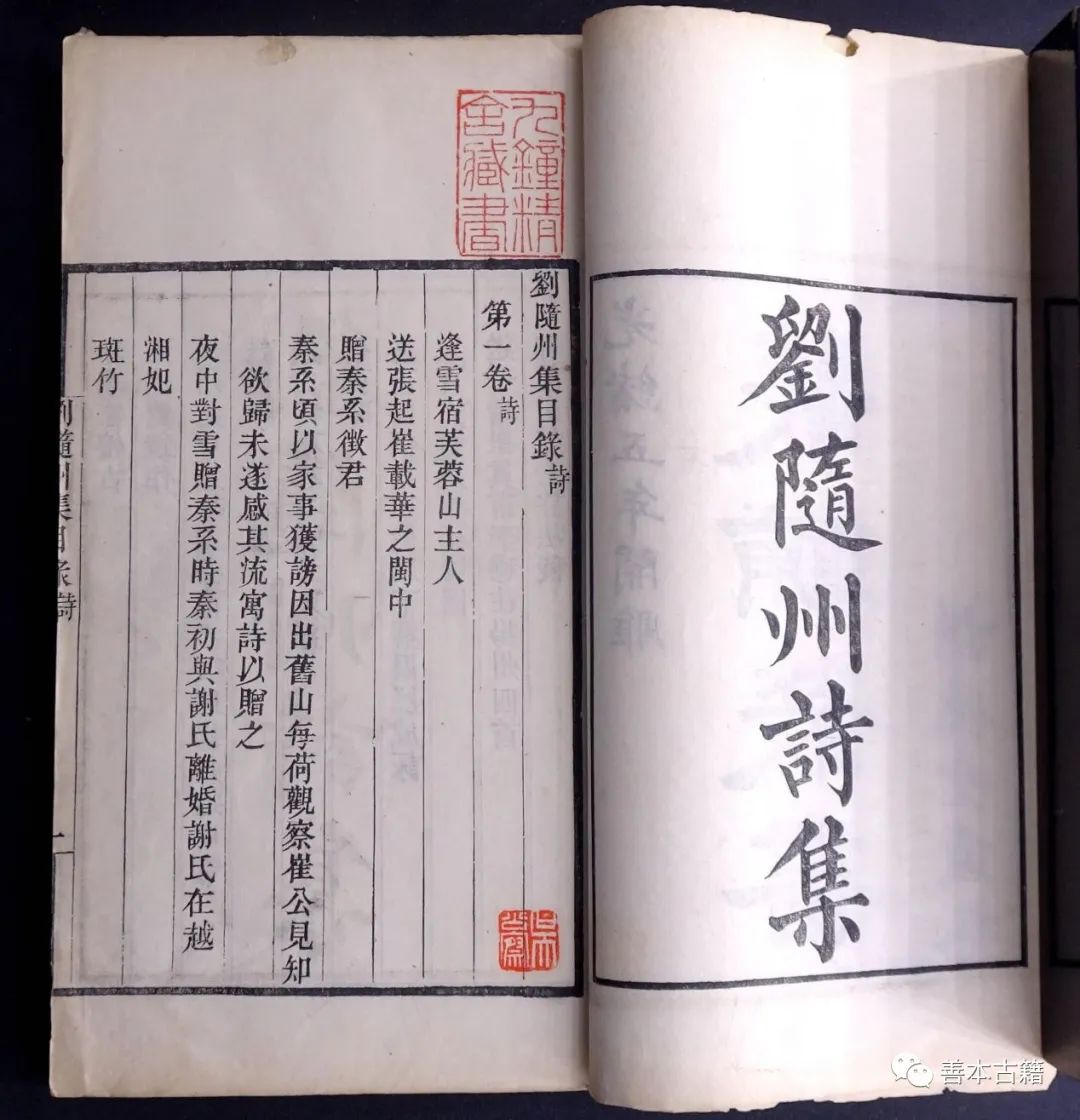 劉隨州詩集
九鐘精
舍藏書
劉隨州集目錄詩
第一卷詩
逢雪宿芙蓉山主人
送張起崔載華之閩中
贈秦系徵君
秦系頃以家事獲謗因出舊山每荷觀察崔公見知
欲歸未遂感其流寓詩以贈之
夜中對雪贈秦系時秦初與謝氏離婚謝氏在越
湘妃
斑竹
劉隨州集目錄詩
一
善本古籍